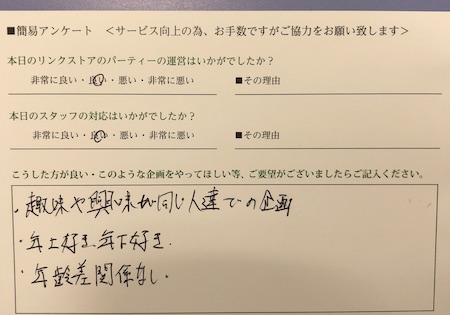 ■簡易アンケート ＜サービス向上の為、お手数ですがご協力をお願い致します＞
本日のリンクストアのパーティーの運営はいかがでしたか？
非常に良い・良い・悪い・非常に悪い ■その理由
本日のスタッフの対応はいかがでしたか？
非常に良い・良い・悪い・非常に悪い ■その理由
こうした方が良い・このような企画をやってほしい等、ご要望がございましたらご記入ください。
・趣味や興味が同じ人達での企画
・年上好き、年下好き。
・年齢差関係なし。